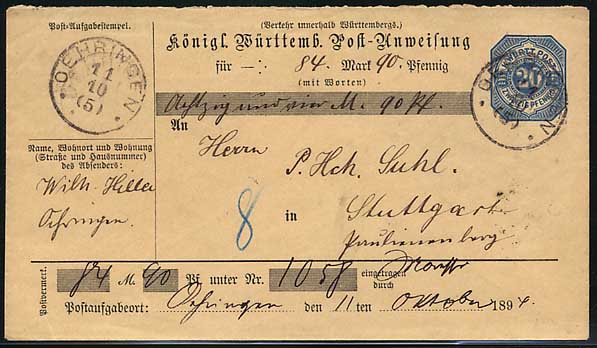 Post-Aufgabestempel.
OEHRINGEN
11
10
(5)
Name, Wohnort und Wohnung
(Straße und Hausnummer)
des Absenders:
Wilh. Hiller
Oehringen.
(Verkehr innerhalb Württembergs.)
Königl. Württemb. Post-Anweisung
für —: 84 Mark 90 Pfennig
(mit Worten)
Achtzig und vier M. 90 Pf.
An
Herrn P. Hch. Suhl.
in Stuttgart
Paulinenberg
8
20
(5)
Postvermerk.
84 M. 90 Pf. unter Nr. 1058 eingetragen durch
Postaufgabeort: Oehringen den 11ten Oktober 1894.